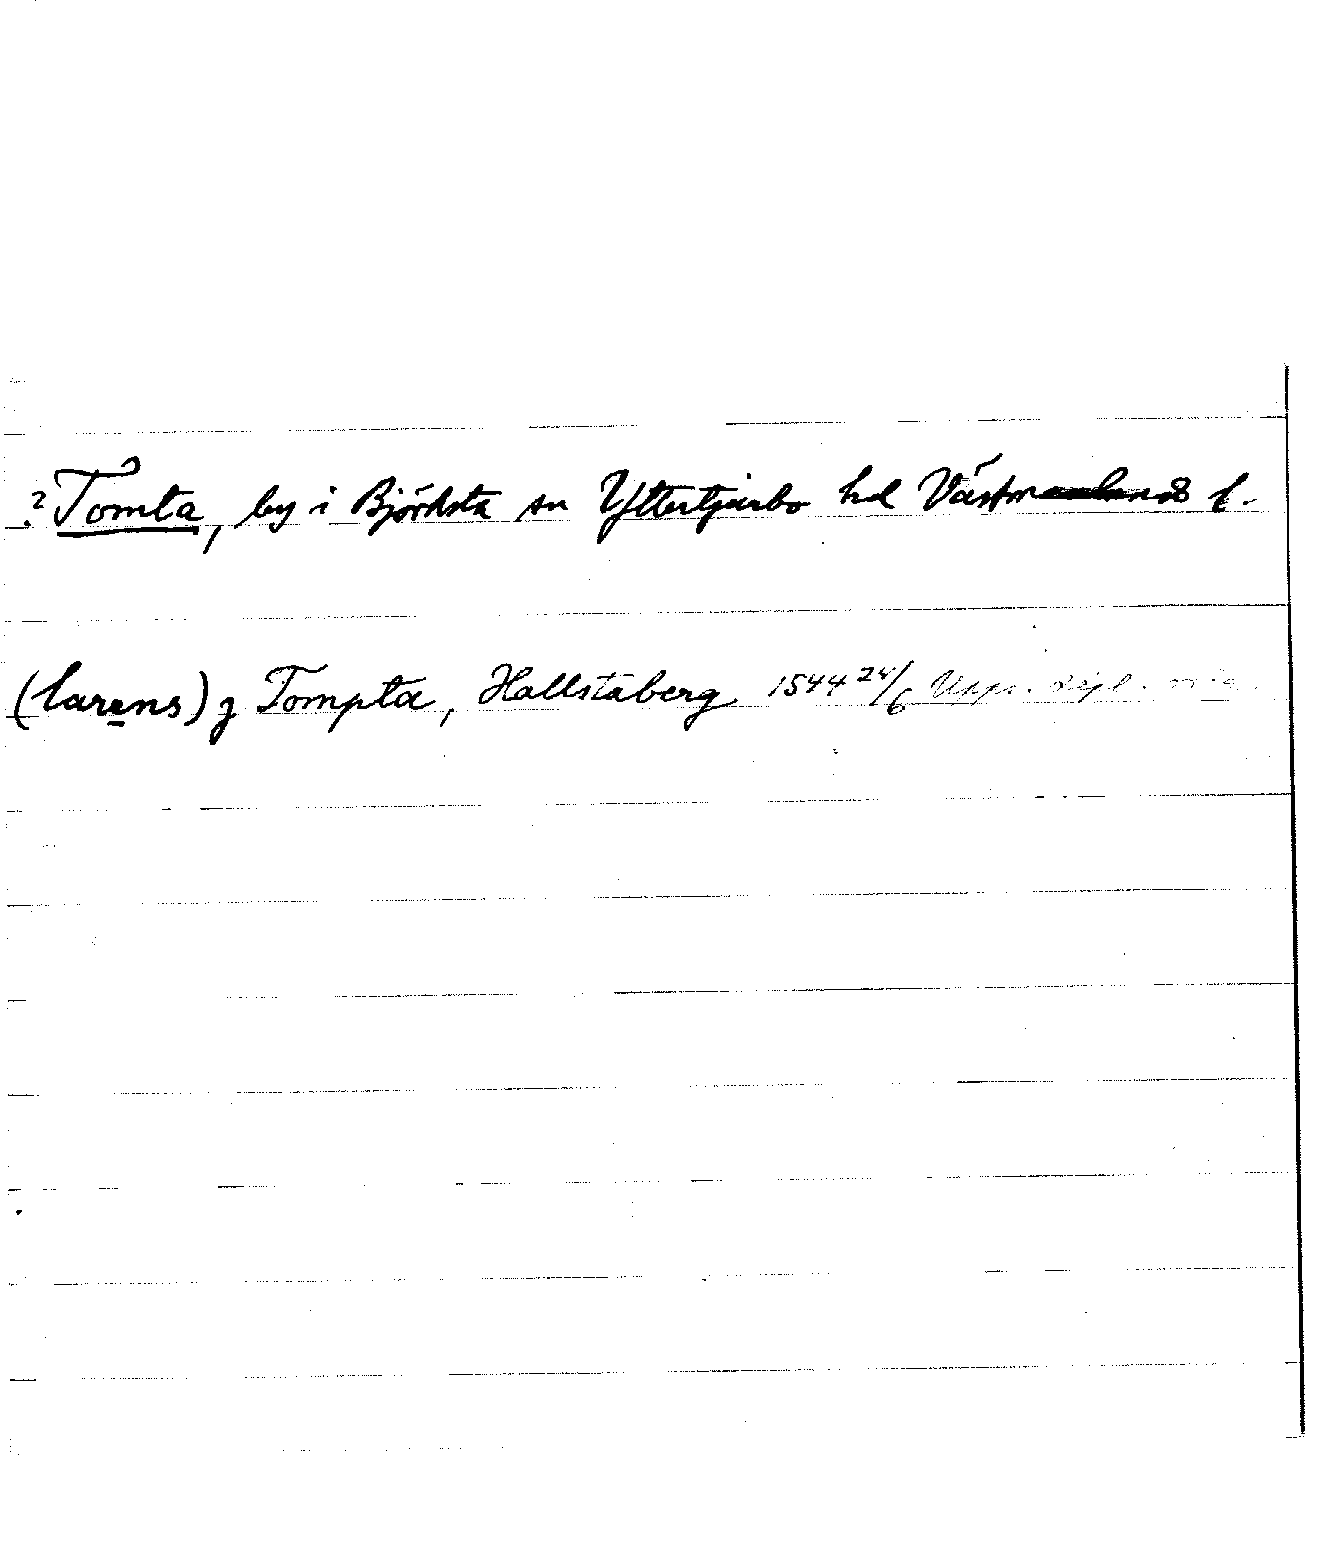 ? Tomta, by i Björksta sn Yttertjurbo hd Västmanlands l.
(larens) ȝ Tompta, Hallstaberg 1544 24/6 Upps. dipl.